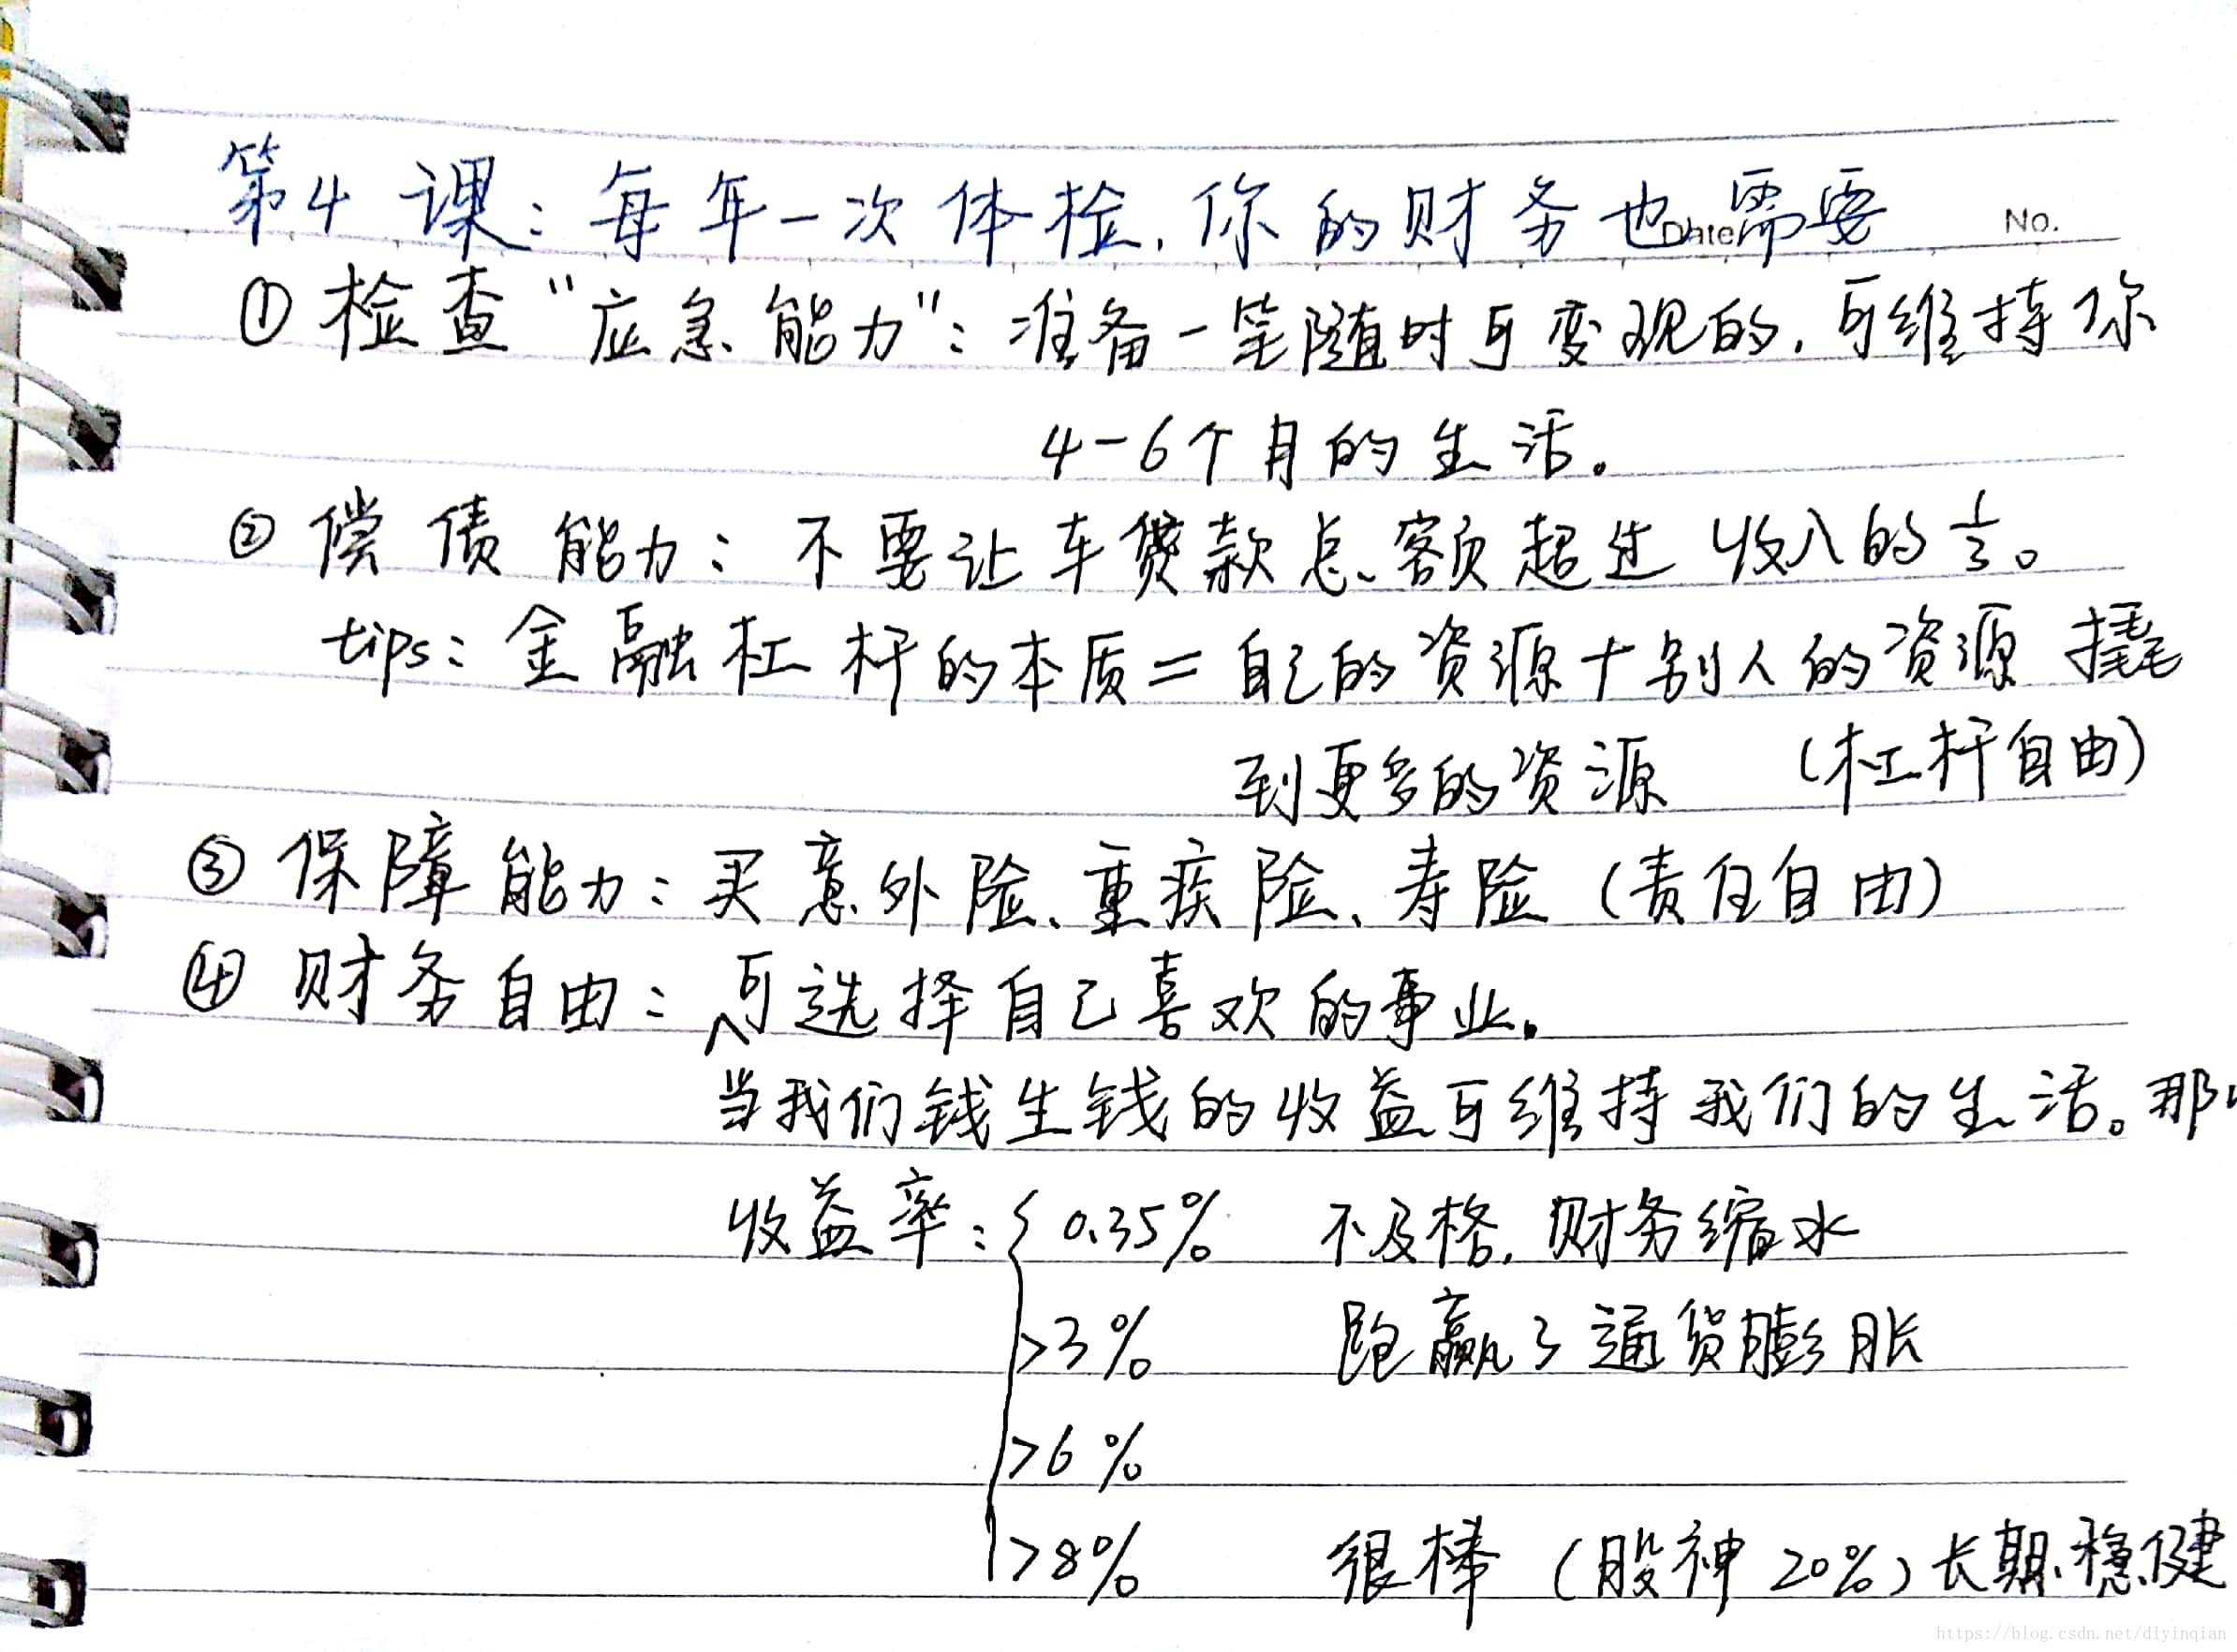 第4课：每年一次体检，你的财务也需要
Date
No.
①检查“应急能力”：准备一笔随时可变现的，可维持你
4-6个月的生活。
②偿债能力：不要让车贷款总额超过收入的1/3。
tips：金融杠杆的本质=自己的资源+别人的资源 撬
到更多的资源 （杠杆自由）
③保障能力：买意外险、重疾险、寿险（责任自由）
④财务自由：可选择自己喜欢的事业。
当我们钱生钱的收益可维持我们的生活。那
收益率：0.35% 不及格，财务缩水
>3% 跑赢了通货膨胀
>6%
>8% 很棒（股神20%）长期稳健
https://blog.csdn.net/diyinqian